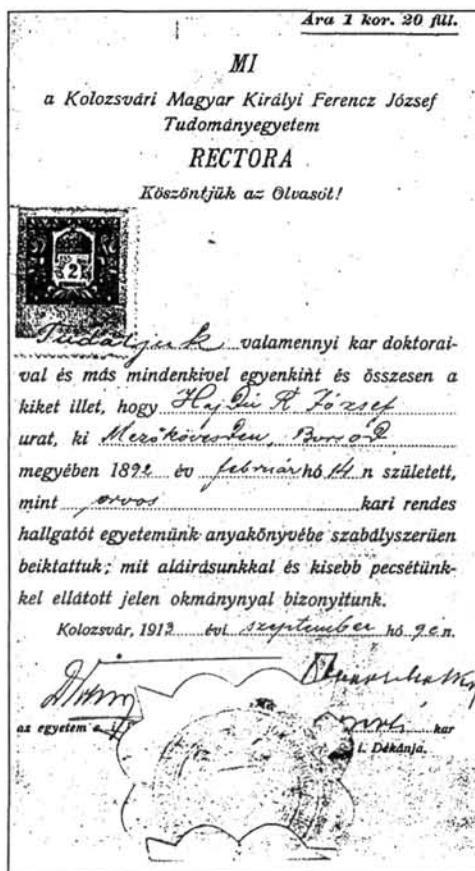 Ára 1 kor. 20 fill.
MI
a Kolozsvári Magyar Királyi Ferencz József
Tudományegyetem
RECTORA
Köszöntjük az Olvasót!
2
Tudatjuk valamennyi kar doktorai-
val és más mindenkivel egyenkint és összesen a
kiket illet, hogy Hejdú R József
urat, ki Mezőkövesden, Borsod
megyében 1892 év február hó 14 n született,
mint orvos kari rendes
hallgatót egyetemünk anyakönyvébe szabályszerüen
beiktattuk; mit aláirásunkkal és kisebb pecsétünk-
kel ellátott jelen okmánynyal bizonyitunk.
Kolozsvár, 1913 évi szeptember hó 9én.
az egyetem
kar
i. Dékánja.